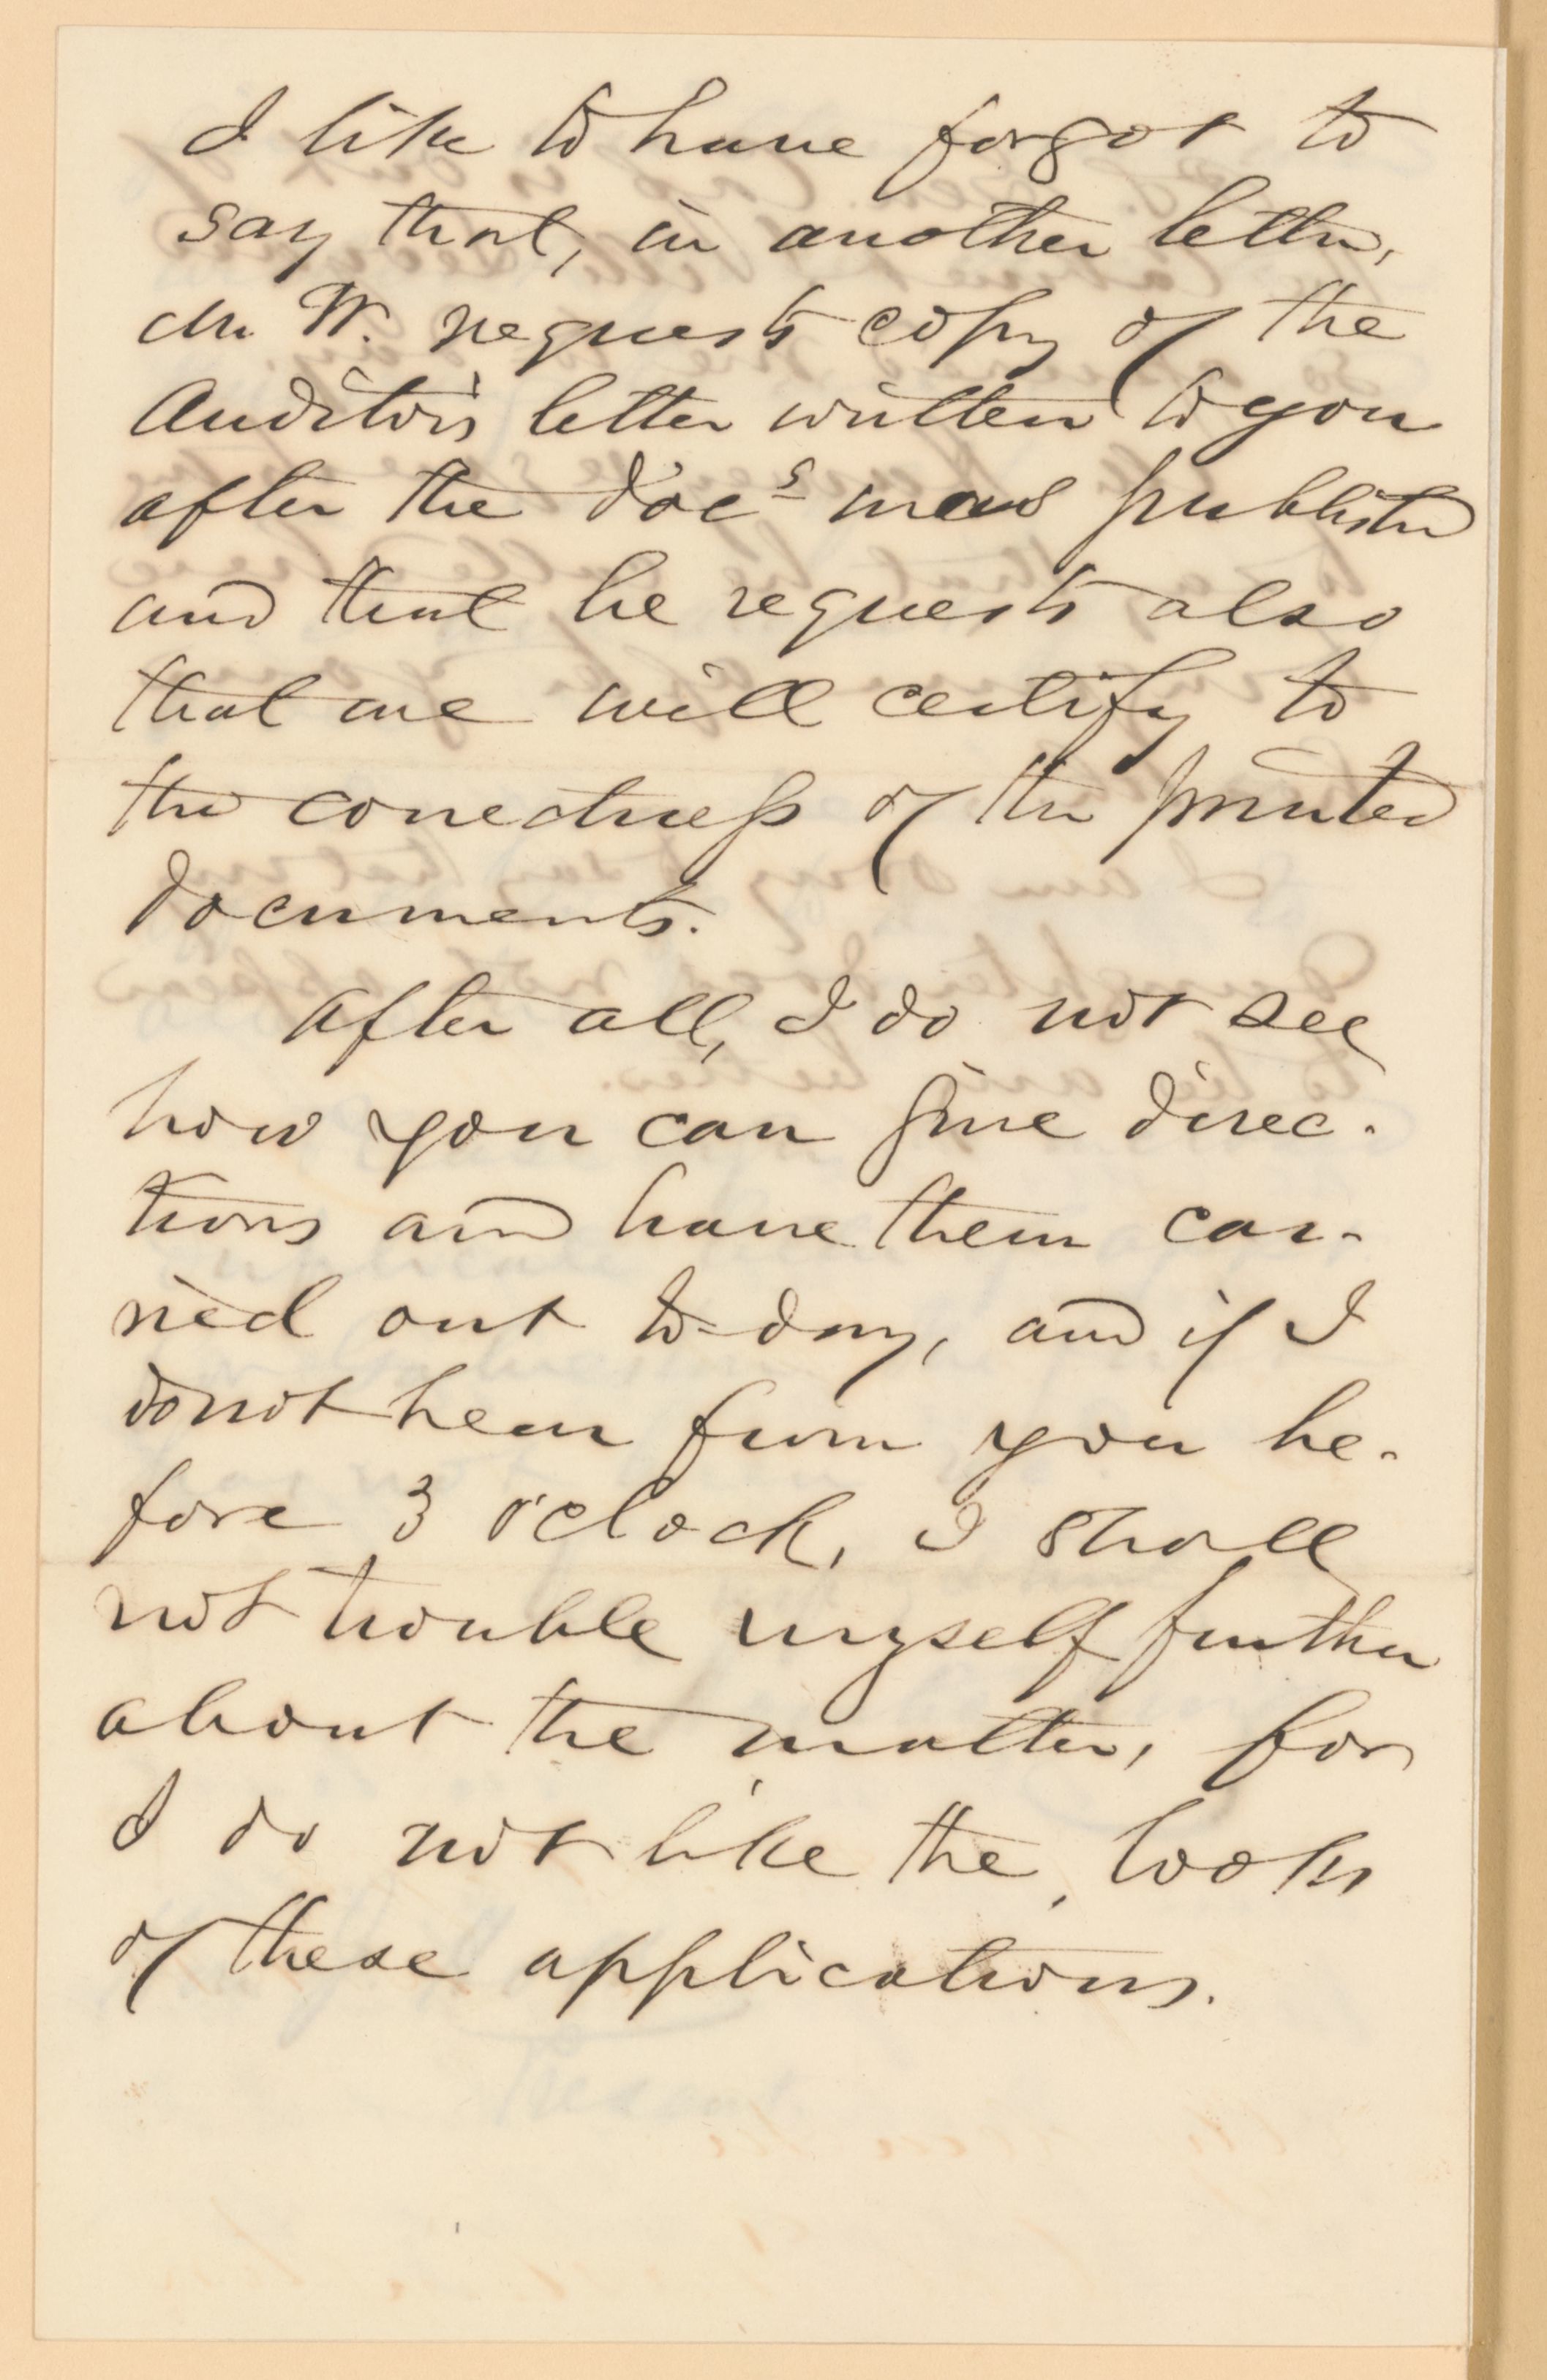 I like to have forgot to
say that, in another letter,
Mr. W. requests copy of the
Auditor's letter written to you
after the doc<sup>s</sup> was published
and that he requests also
that we will certify to
the correctness of the printed
documents.
After all, I do not see
how you can give direc-
tions and have them car-
ried out to-day, and if I
do not hear from you be-
fore 3 o'clock, I shall
not trouble myself further
about the matter, for
I do not like the looks
of these applications.